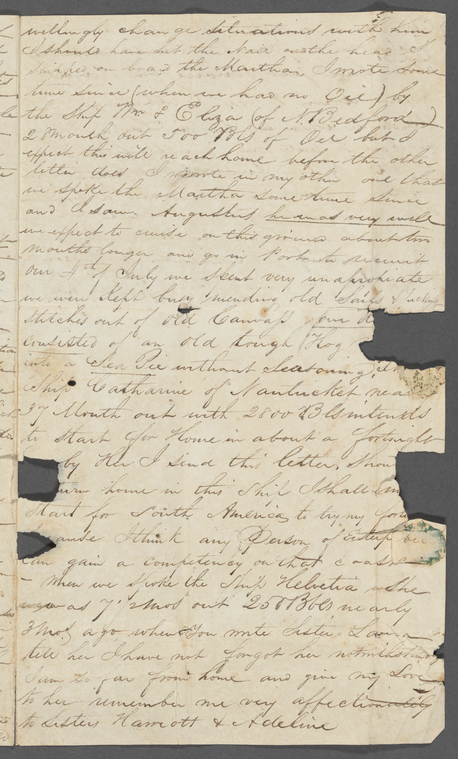 willingly change situations with him
I should have hit the Nail on the head &
shipped on board the Martha I wrote some
time since (when we had no Oil) by
the Ship Wm & Eliza (of N. Bedford)
28 month out 500 Bls of Oil but I
expect this will reach home before the other
letter does I wrote in my other one that
we spoke the Martha some time since
and I saw Augustus he was very well
we expect to cruise on this ground about two
months longer and go in Port to recruit
our 4th of July we spent very
we were kept busy mending old Sails &
stitches out of old Canvass our
consisted of an old tough Hog
into a Sea Pie without Seasoning
Ship Catharine of Nantucket near
37 Month out with 2800 Bls intends
to start for Home in about a fortnight
by Her I send this letter,
home in this Ship I shall
start for South America to
I think any Person of
can gain a competency on that coast
- When we spoke the Ship Helvetia She
was 7 mos out 250 Bbls nearly
3 mos ago when You write Sister Laura
tell her I have not forgot her
I am so far from home and give my Love
to her remember me very affectionately
to Sisters Harriott & Adeline